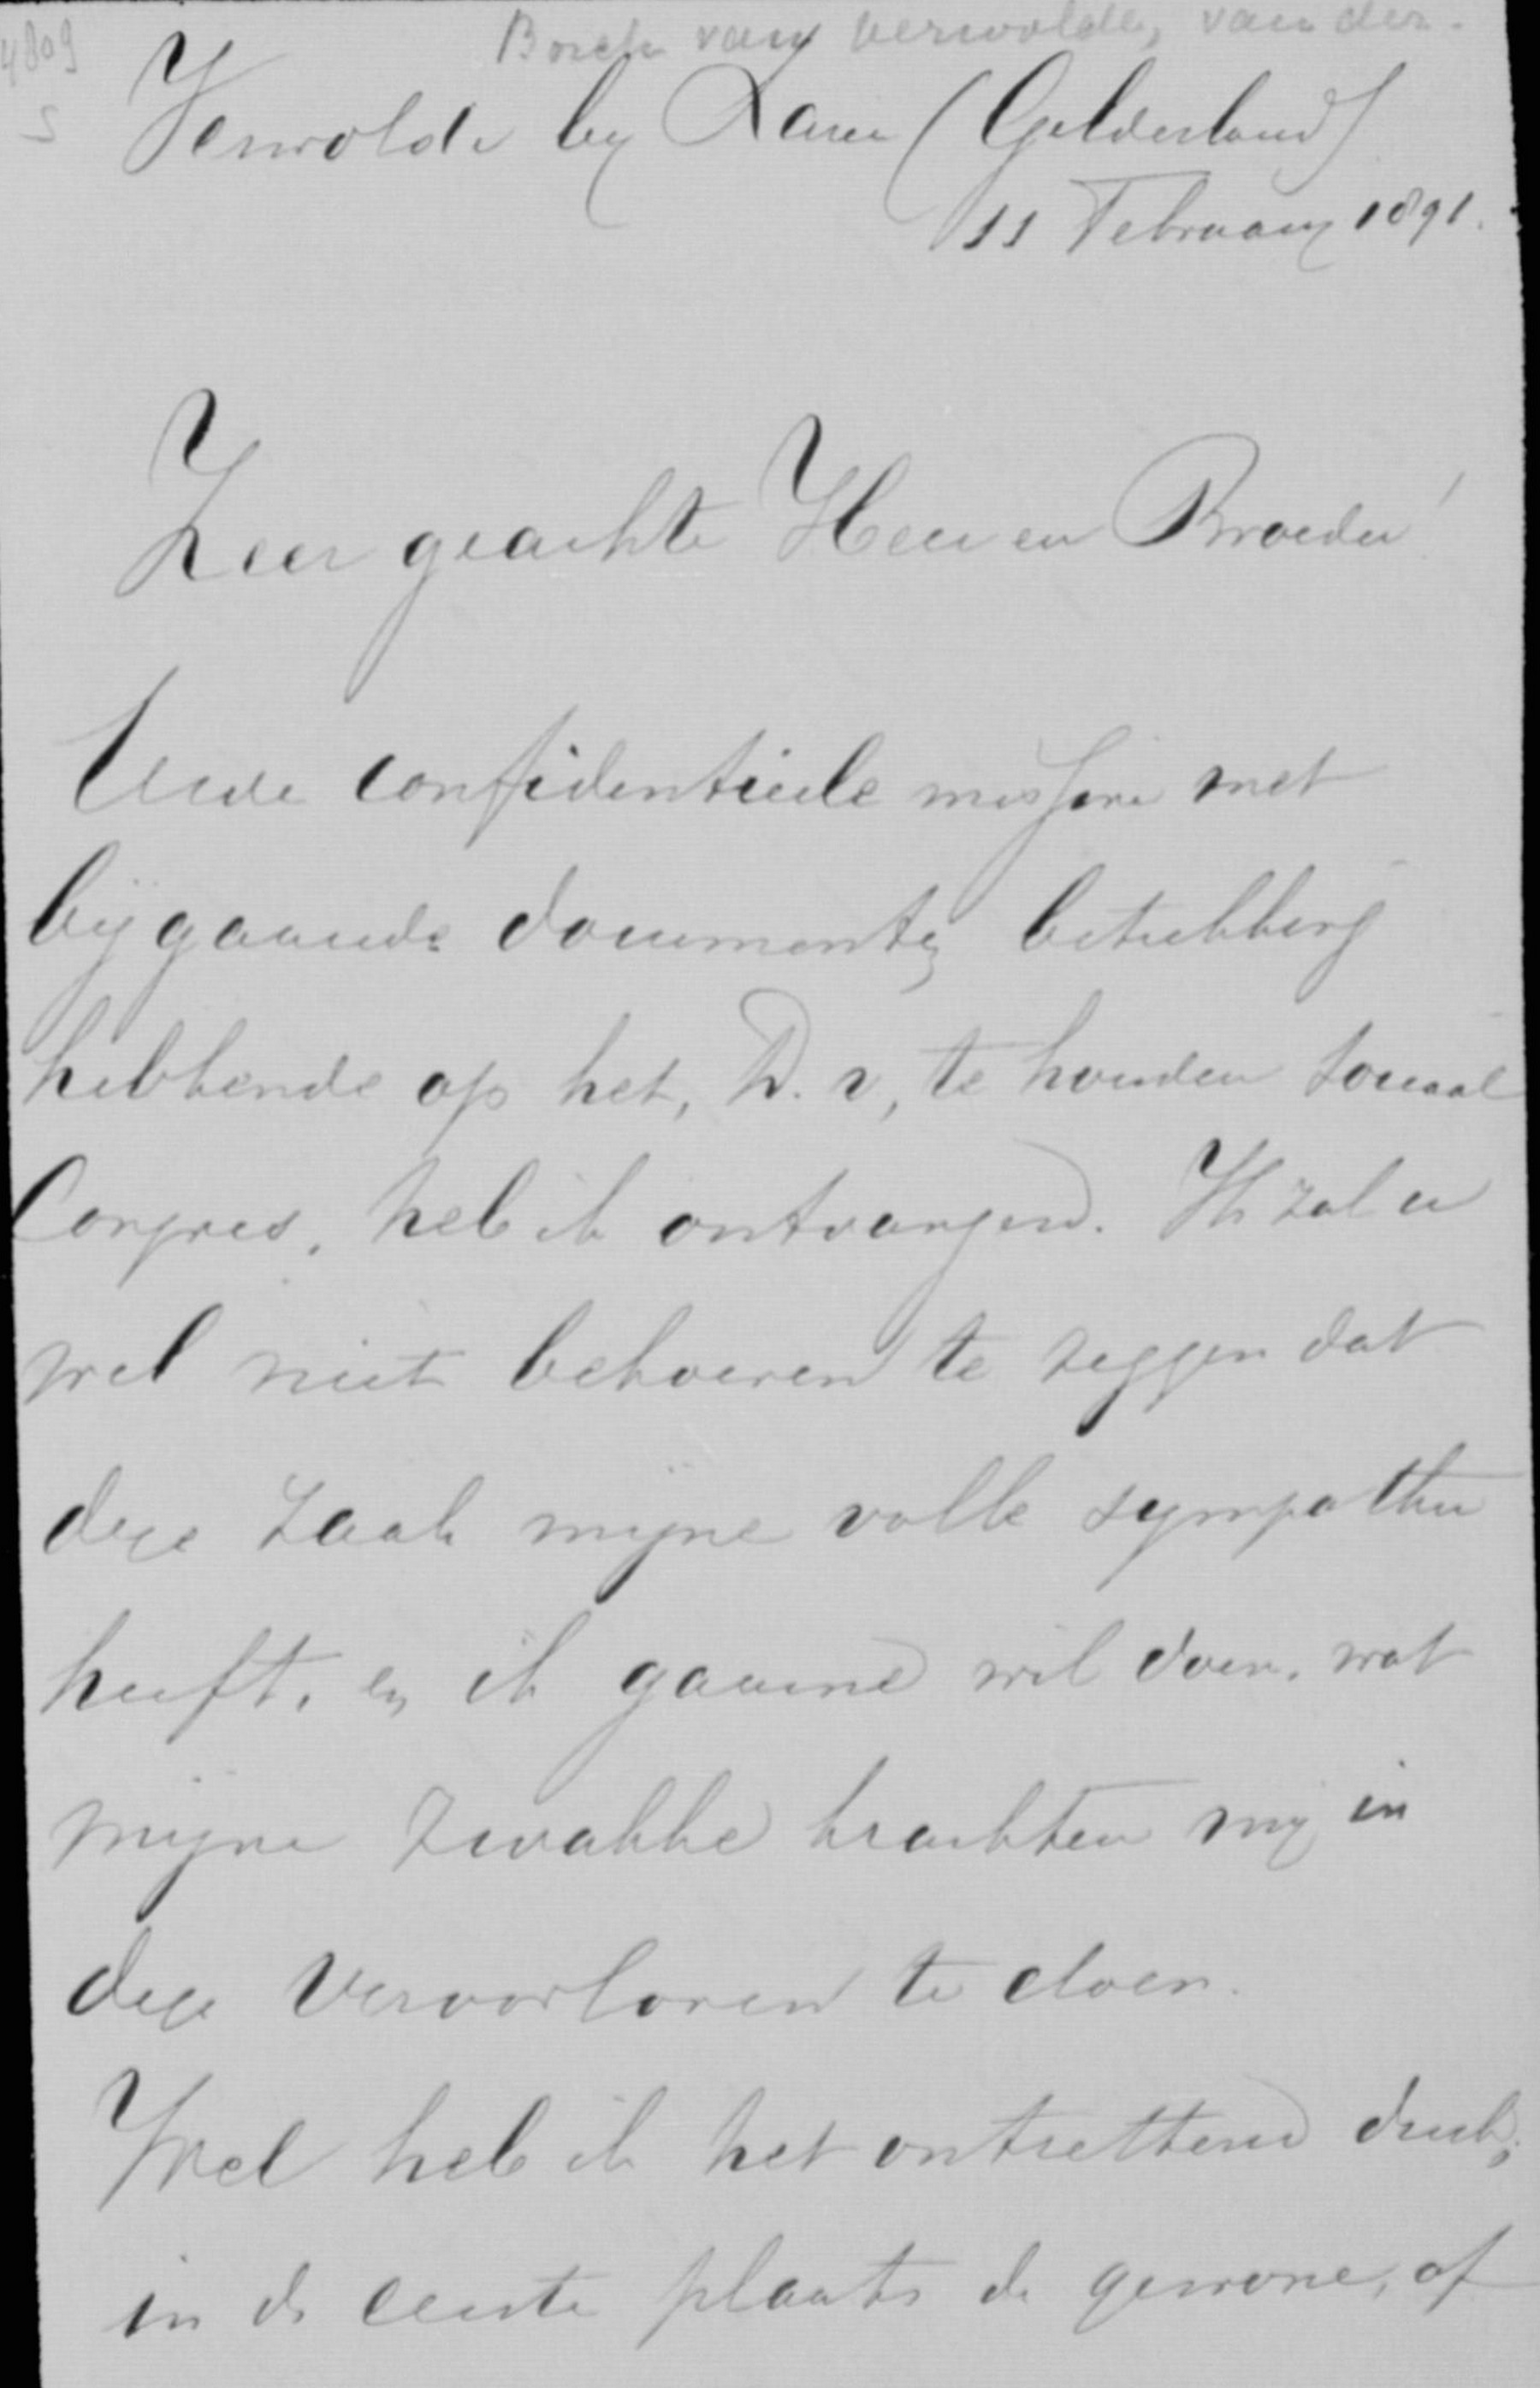 4809
5
Borch van Verwolde, van der.
Verwolde by Laren (Gelderland)
11 February 1891.
Zeer geachte Heer en Broeder!
Uwe confidentieele missive met
bijgaande documenten betrekking
hebbende op het, D.V, te houden sociaal
Congres, heb ik ontvangen. Ik zal er
wel niet behoeven te zeggen dat
deze zaak mijne volle sympathie
heeft, en ik gaarne wil doen, wat
mijne zwakke krachten mij in
deze veroorloven te doen.
Wel heb ik het ontzettend druk,
in de eerste plaats de gewone, of